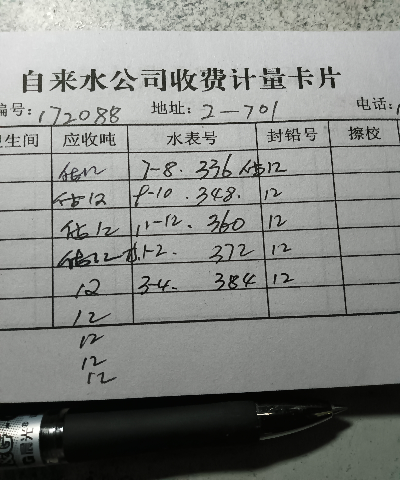 自来水公司收费计量卡片
编号: 172088 地址: 2-701 电话:
卫生间 应收吨 水表号 封铅号 擦校
估12 7-8. 336 估12
估12 9-10. 348. 12
估12 11-12. 360 12
估12 1-2 372 12
12 3-4. 384 12
12
12
12
12